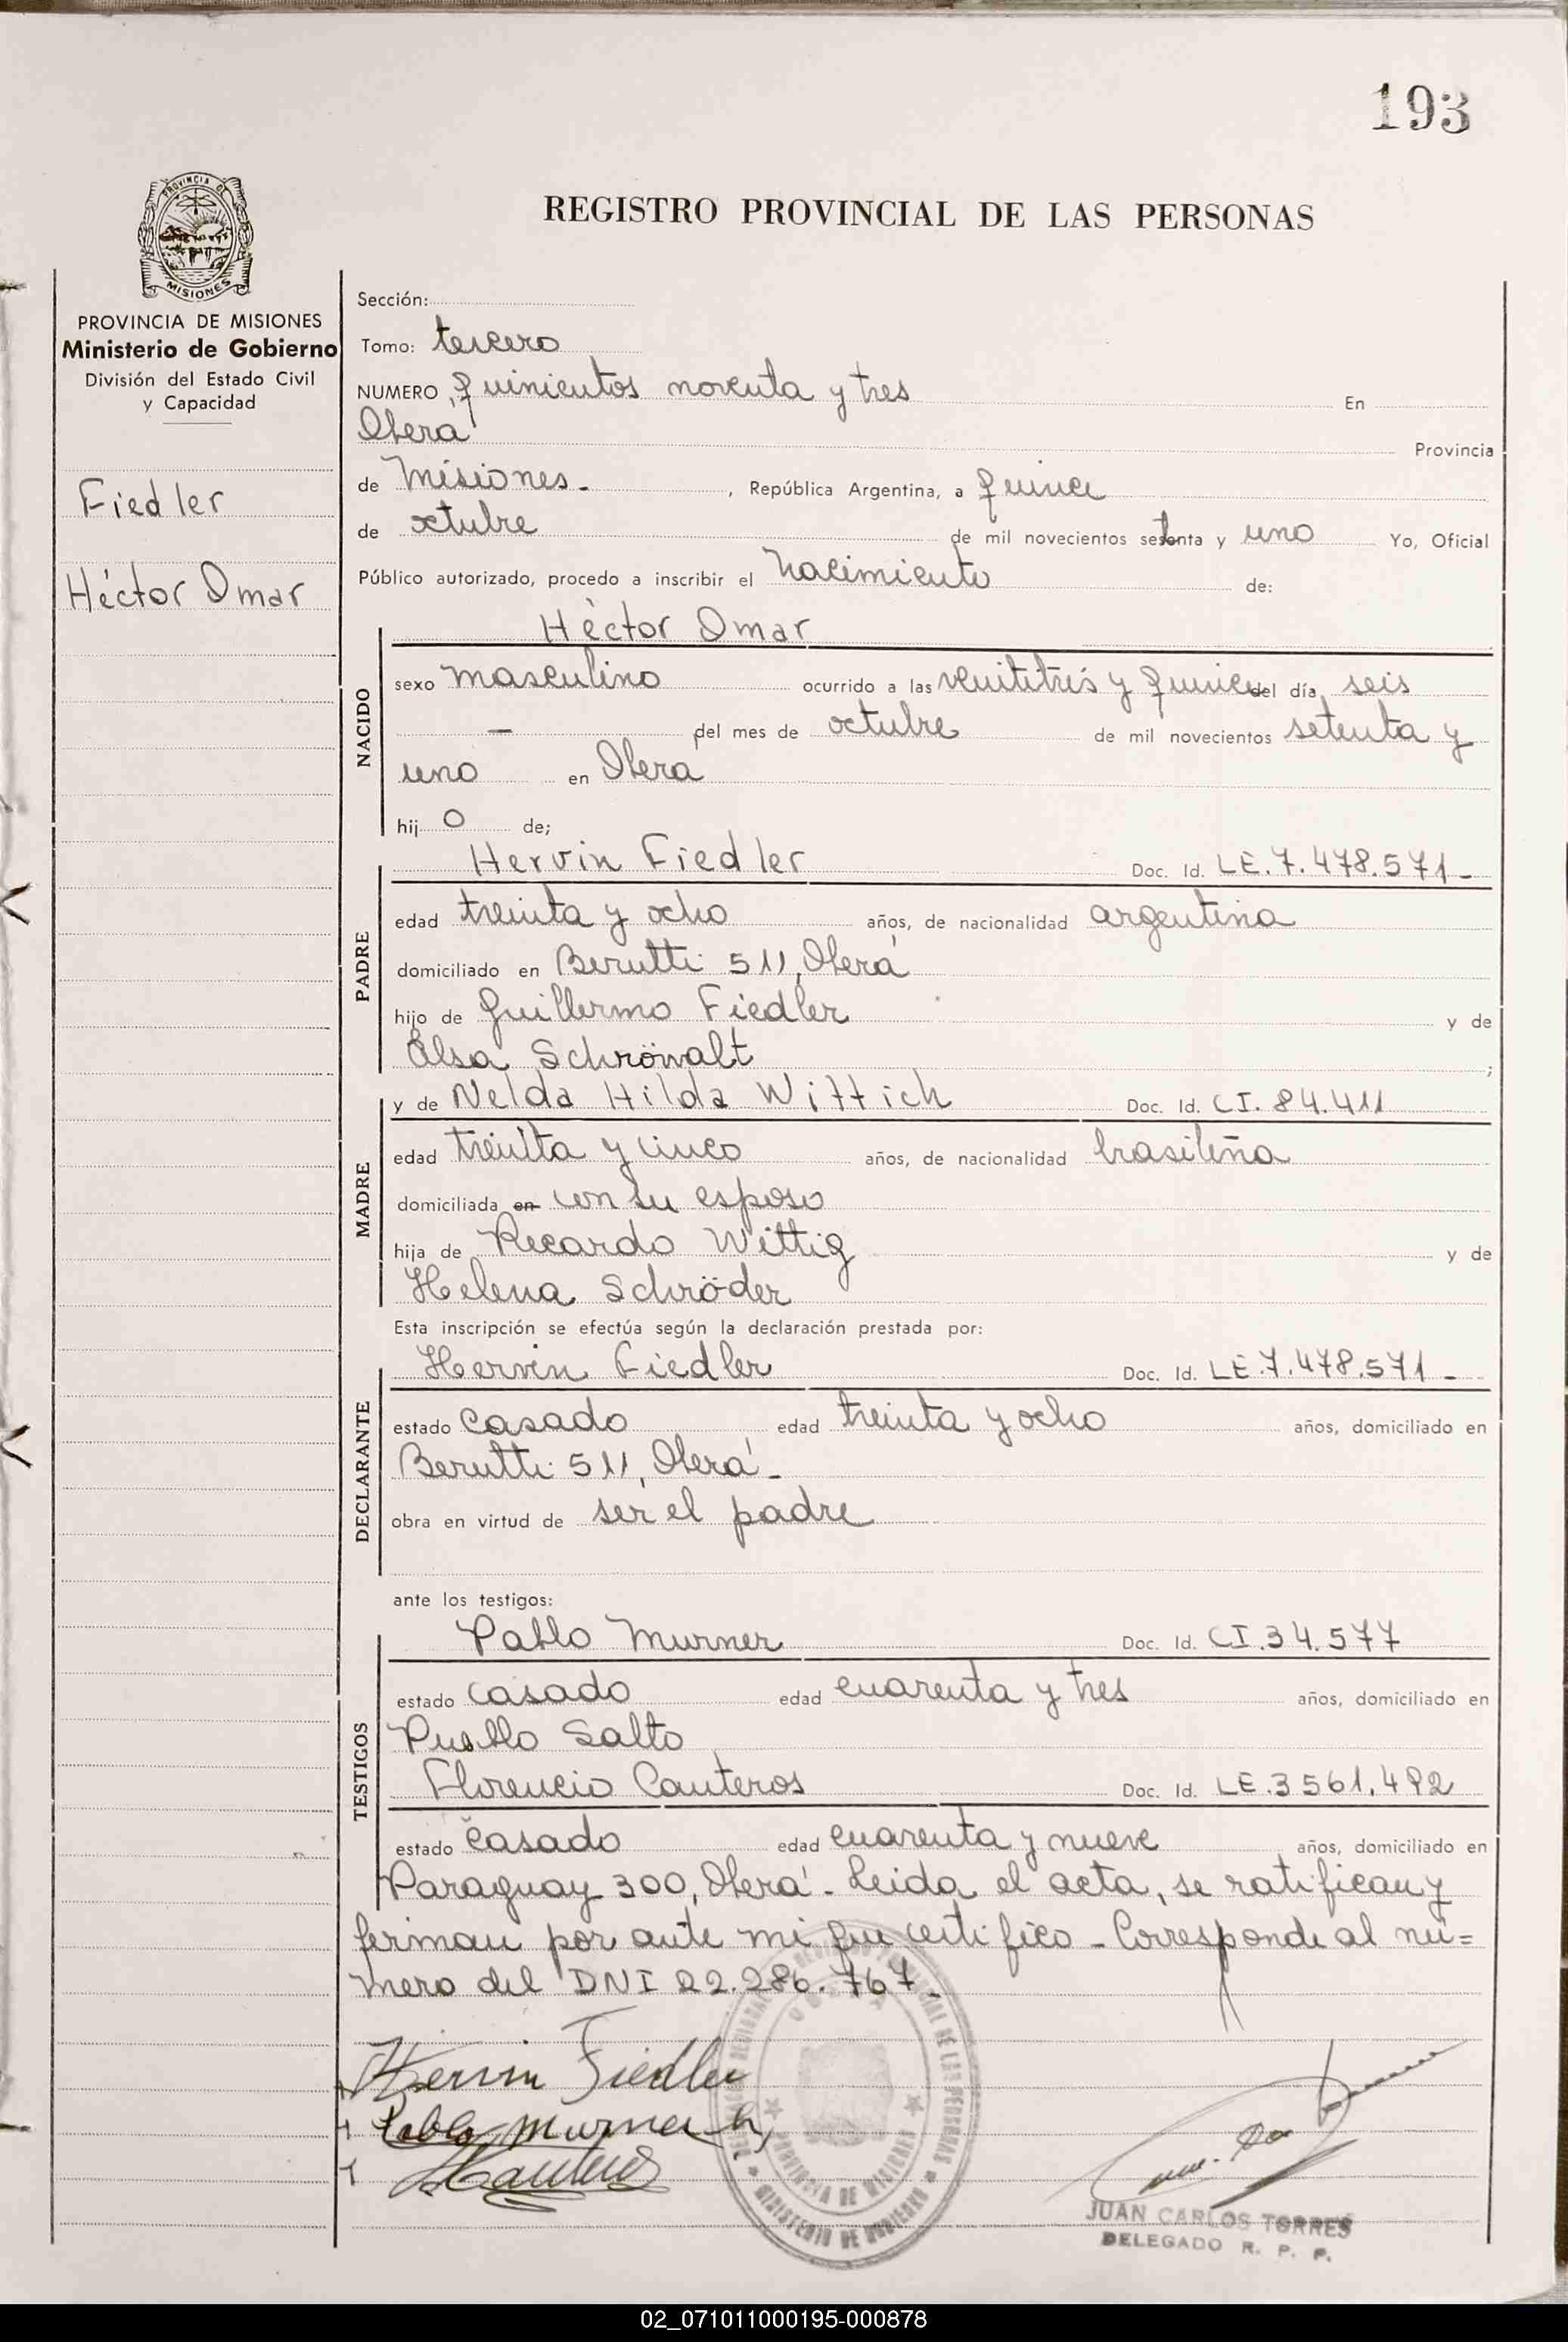 193
PROVINCIA DE
MISIONES
REGISTRO PROVINCIAL DE LAS PERSONAS
PROVINCIA DE MISIONES
Ministerio de Gobierno
División del Estado Civil
y Capacidad
Fiedler
Héctor Omar
Sección:
Tomo: tercero
NUMERO quinientos noventa y tres En
Oberá Provincia
de Misiones- , República Argentina, a quince
de octubre de mil novecientos setenta y uno Yo, Oficial
Público autorizado, procedo a inscribir el nacimiento de:
Héctor Omar
NACIDO
sexo masculino ocurrido a las veintitrés y quince del día seis
— del mes de octubre de mil novecientos setenta y
uno en Obera
hij o de;
Hervin Fiedler Doc. Id. LE.7.478.571-
PADRE
edad treinta y ocho años, de nacionalidad argentina
domiciliado en Berutti 511, Oberá
hijo de Guillermo Fiedler y de
Elsa Schrönwalt ;
y de Nelda Hilda Wittich Doc. Id. CI. 84.411
MADRE
edad treinta y cinco años, de nacionalidad brasileña
domiciliada en con su esposo
hija de Ricardo Wittig y de
Helena Schröder
Esta inscripción se efectúa según la declaración prestada por:
Hervin Fiedler Doc. Id. LE.7.478.571-
DECLARANTE
estado casado edad treinta y ocho años, domiciliado en
Berutti 511, Oberá-
obra en virtud de ser el padre
ante los testigos:
Pablo Murner Doc. Id. CI.34.577
TESTIGOS
estado casado edad cuarenta y tres años, domiciliado en
Pueblo Salto
Florencio Canteros Doc. Id. LE.3561.492
estado casado edad cuarenta y nueve años, domiciliado en
Paraguay 300, Oberá- Leida el acta, se ratifican y
firman por ante mi que certifico - Corresponde al nú=
mero del DNI 22.286.767-
Hervin Fiedler
Pablo Murner h,
FCanteros
PROVINCIA DE MISIONES
MINISTERIO DE GOBIERNO
JUAN CARLOS TORRES
DELEGADO R. P. P.
02_071011000195-000878